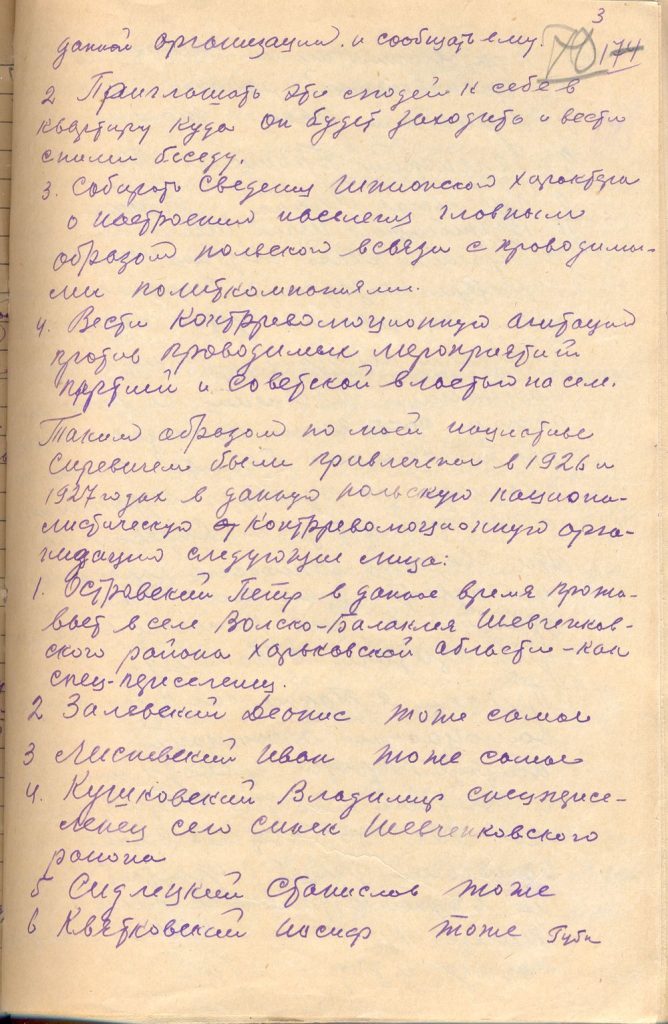 3
70 174
данной организации. и сообщать ему.
2 Приглашать эти людей к себе в
квартиру куда он будет заходить и вести
сними беседу.
3. Собирать сведения шпионского характера
о настроении населения главным
образом польского всвязи с проводимы-
ми политкомпаниями.
4. Вести контрреволюционную агитацию
против проводимых мероприятий
партией и советской властью на селе.
Таким образом по моей
были привлечены в 1926 и
1927 годах в данную польскую национа-
листическую контрреволюционную орга-
низацию следующие лица:
1. Островский Петр в данное время прожи-
вает в селе Волско-Балаклея Шевченков-
ского района Харьковской области - как
спец-переселенец.
2 Залевский Деонис тоже самое
3 Лисневский Иван тоже самое
4. Кушковский Владимир спецпересе-
ленец село Шевченковского
района
5 Сидлецкий Станислав тоже
6 Квятковский Иосиф тоже